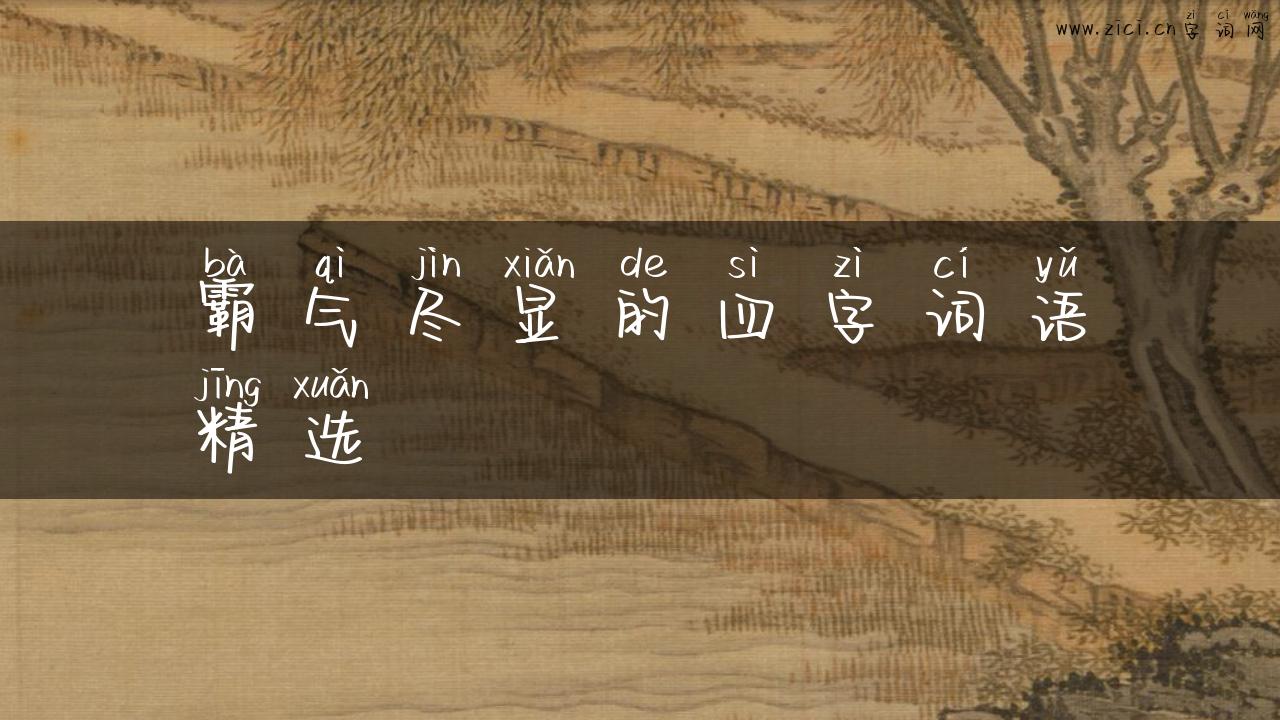 www.zici.cn字词网
zì cí wǎng
bà qì jìn xiǎn de sì zì cí yǔ
霸气尽显的四字词语
jīng xuǎn
精选